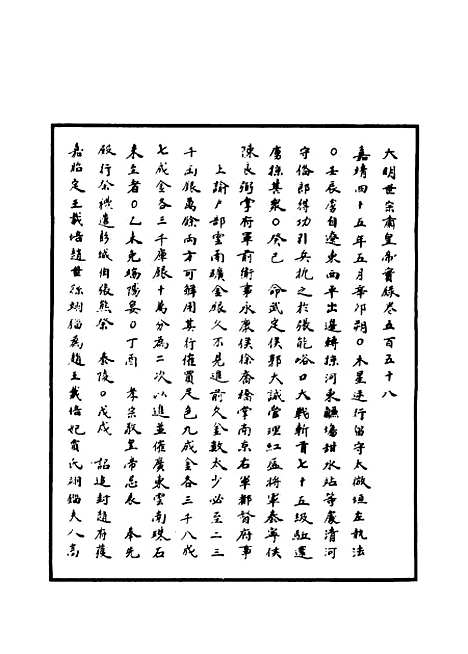 大明世宗肅皇帝實錄卷五百五十八
嘉靖四十五年五月辛卯朔○木星逆行留守太微垣左執法
○壬辰虜自遼東西平出邊轉掠河東鹽場甜水站等處清河
守偹郎得功引兵扼之於張能峪口大戰斬首七十五級駈還
虜掠甚衆○癸巳　命武定侯郭大誠管理紅盔將軍泰寧侯
陳良弼掌府軍前衛事永康侯徐喬橋掌南京右軍都督府事
上諭户部雲南礦金銀久不見進前欠金數太少必至二三
千両銀萬餘両方可解用其行催買足色九成金各三千八成
七成金各三千庫銀十萬分為二次以進並催廣東雲南珠石
未至者○乙未免端陽宴○丁酉　孝宗敬皇帝忌辰　奉先
殿行祭禮遣彭城伯張熊祭　泰陵○戊戌　詔追封趙府葰
嘉昭定王載培趙世孫翊錙為趙王載培妃賁氏翊錙夫人高